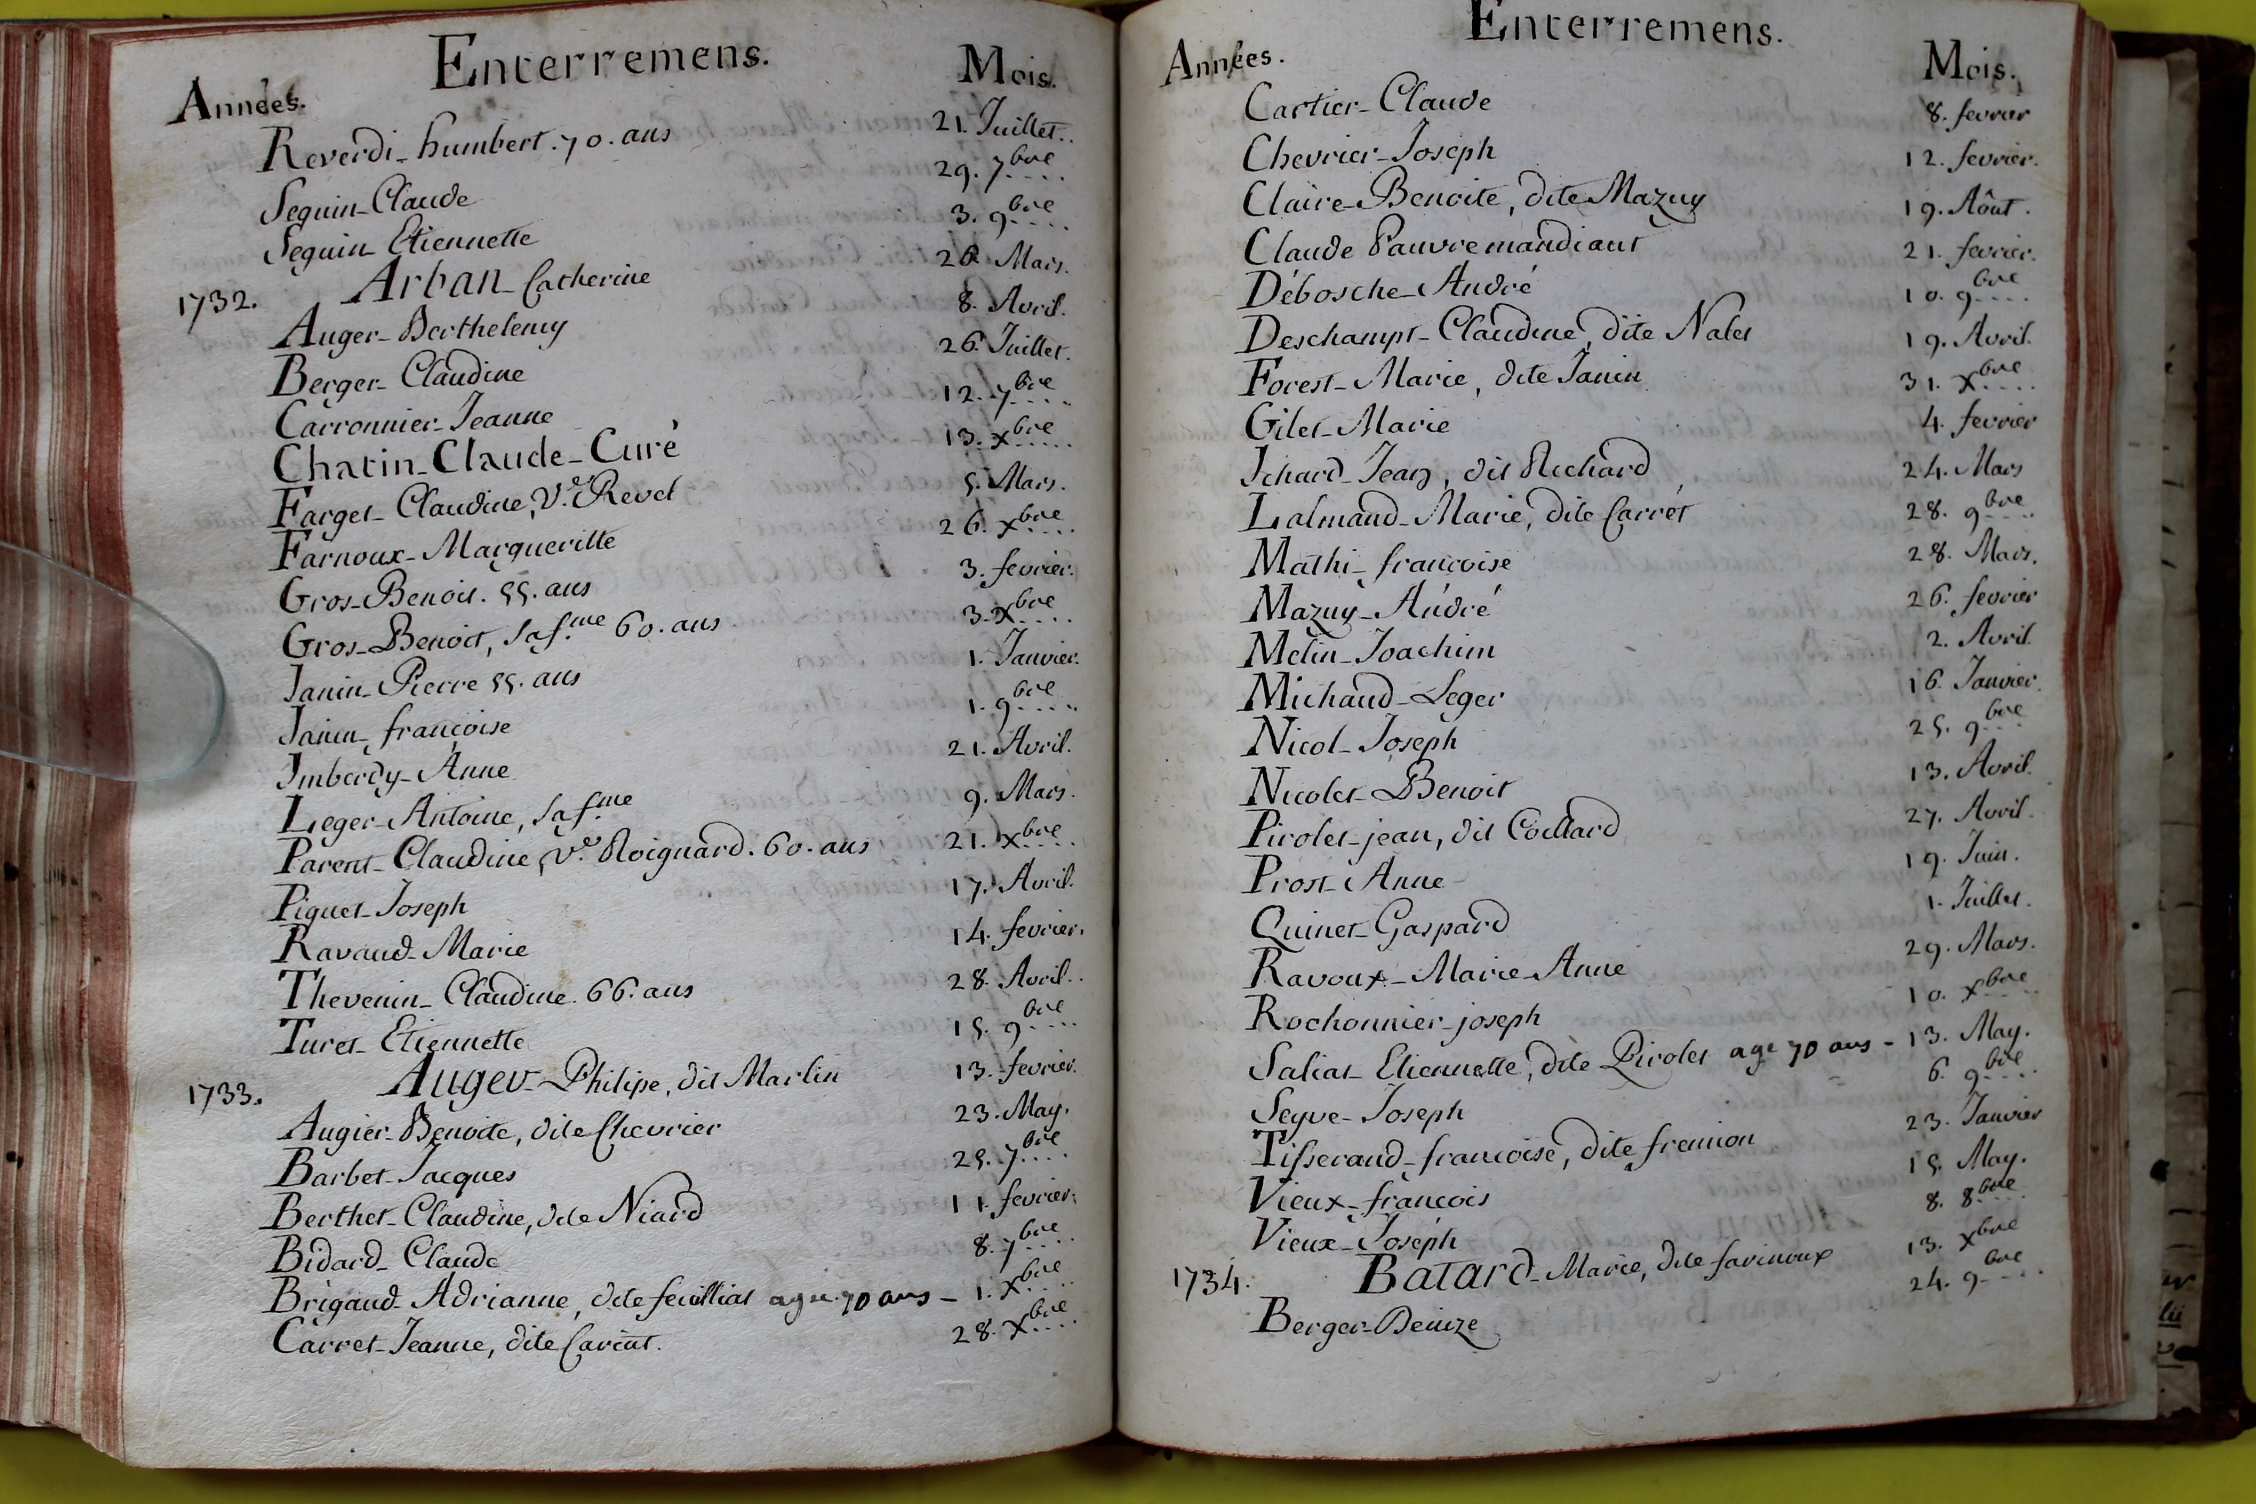 Enterremens.
Années. Mois.
Reverdi - humbert. 70. ans 21. Juillet.
Seguin - Claude 29. 7bre
Seguin Etiennette 3. 9bre
1732. Arban - Catherine 26 Mars.
Auger - Berthelemy 8. Avril.
Berger - Claudine 26. Juillet.
Carronnier - Jeanne 12. 7bre
Chatin - Claude - Curé 13. xbre
Farget - Claudine, Ve. Revel 5. Mars.
Farnoux - Margueritte 26. xbre
Gros - Benoit. 55. ans 3. fevrier.
Gros - Benoit, sa fme 60. ans 3. xbre
Janin - Pierre 55. ans 1. Janvier.
Janin - françoise 1. 9bre
Imberdy - Anne 21. Avril.
Leger - Antoine, sa fme 9. Mars.
Parent - Claudine, Ve. Roignard. 60. ans 21. xbre
Piquet - Joseph 17. Avril.
Ravaud - Marie 14. fevrier.
Thevenin - Claudine. 66. ans 28. Avril.
Turet - Etiennette 15. 9bre
1733. Auger - Philipe, dit Marlin 13. fevrier.
Augier - Benoite, dite Chevrier 23. May.
Barbet - Jacques 25. 7bre
Berthet - Claudine, dite Niard 11. fevrier.
Bidard - Claude 8. 7bre
Brigaud - Adrianne, dite feuilliat agee 70 ans - 1. Xbre
Carret - Jeanne, dite 28. xbre
Enterremens.
Années. Mois.
Cartier - Claude 8. fevrier
Chevrier - Joseph 12. fevrier.
Claire - Benoite, dite Mazuy 19. Aôut.
Claude Pauvre mandiant 21. fevrier.
Débosche - André 10. 9bre
Deschampt - Claudine, dite Nalet 19. Avril.
Forest - Marie, dite Janin 31. xbre
Gilet - Marie 4. fevrier
Ichard - Jean, dit Richard 24. Mars
Lalmand - Marie, dite Carret 28. 9bre
Mathi - françoise 28. Mars.
Mazuy - André 26. fevrier
Melin - Joachim 2. Avril
Michaud - Leger 16. Janvier.
Nicol - Joseph 25. 9bre
Nicolet - Benoit 13. Avril.
Pirolet - jean, dit Coillard 27. Avril.
Prost - Anne 19. Juin.
Quinet - Gaspard 1. Juillet.
Ravoux - Marie - Anne 29. Mars.
Rochonnier - joseph 10. xbre
Saliat - Etiennette, dite Pirolet age 70 ans - 13. May.
Seyve - Joseph 6. 9bre
Tisserand - francoise, dite fremion 23. Janvier
Vieux - francois 15. May.
Vieux - Joseph 8. 8bre
1734. Batard - Marie, dite farinoux 13. xbre
Berger - Denize 24. 9bre